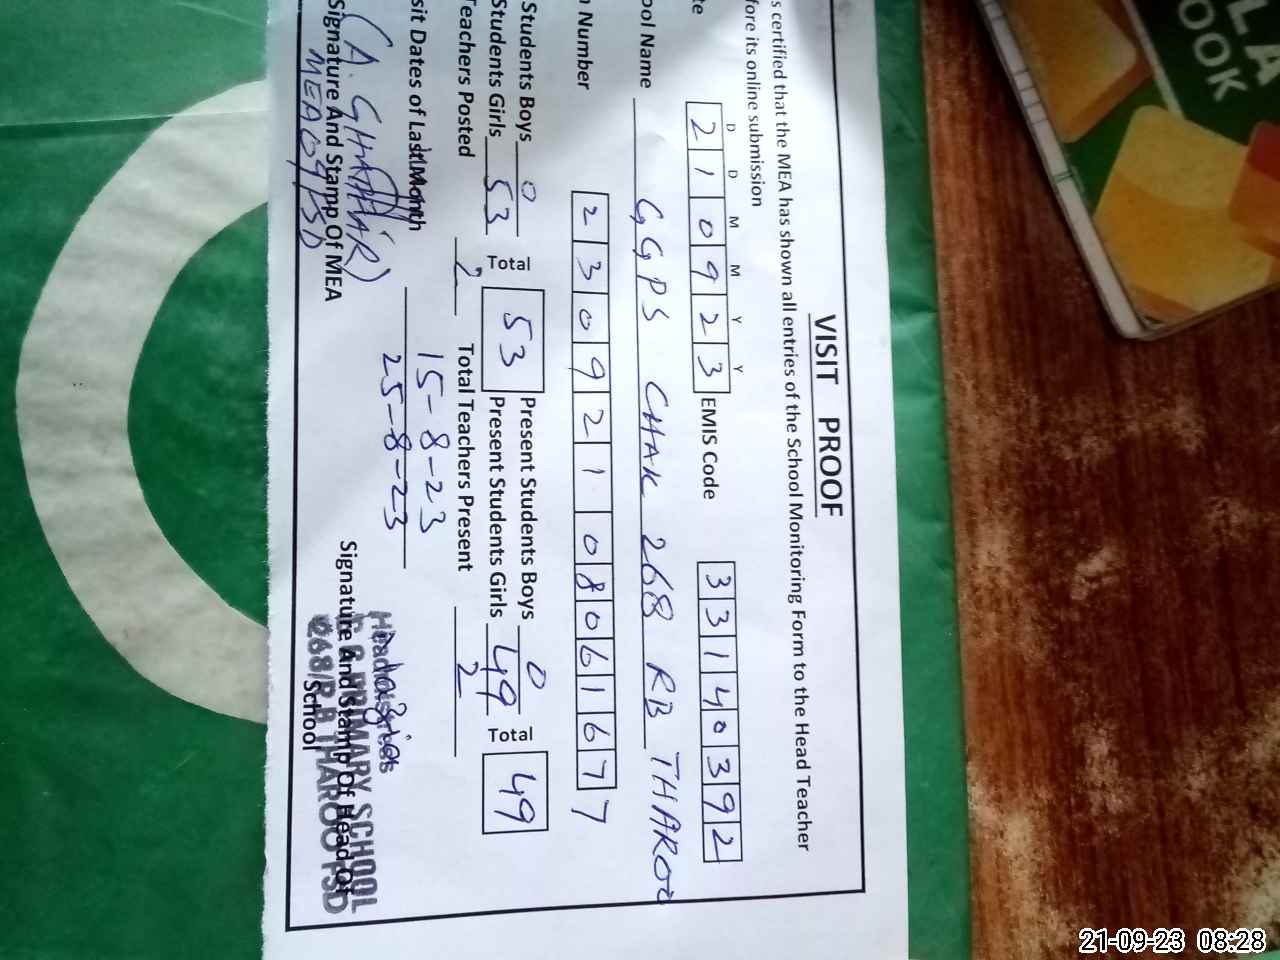 VISIT PROOF
s certified that the MEA has shown all entries of the School Monitoring Form to the Head Teacher
fore its online submission
D D M M Y Y
te 2 1 0 9 2 3 EMIS Code 3 3 1 4 0 3 9 2
ool Name GGPS CHAK 268 RB THAROO
n Number 2 3 0 9 2 1 0 8 0 6 1 6 7 7
Students Boys 0 Present Students Boys 0
Students Girls 53 Total 53 Present Students Girls 49 Total 49
Teachers Posted 2 Total Teachers Present 2
sit Dates of Last Month 15-8-23
25-8-23
(A. GHAFFAR)
Signature And Stamp Of MEA
MEA09FSD
Signature And Stamp Of Head Of
School
Headmistress
G.G PRIMARY SCHOOL
268/R.B THAROO FSD
LA
OOK
21-09-23 08:28